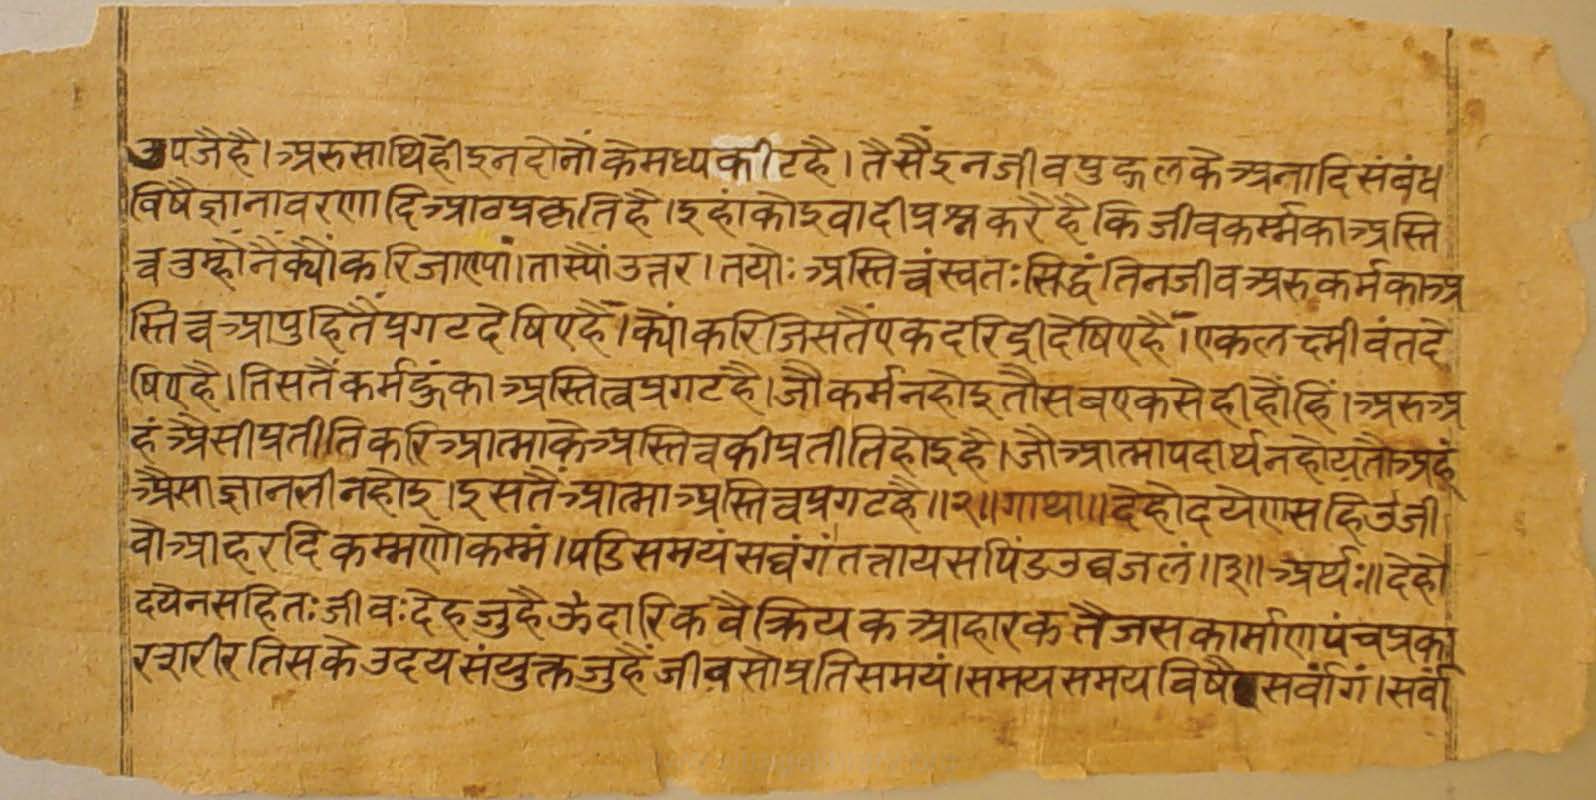 उपजैहै। अरुसाथिही इनदोनौंकैमध्यकीटहै। तैसैंइनजीवपुद्गलकैअनादिसंबंध
विषैज्ञानावरणादिआवप्रकृतिहै। इहांकोइवादीप्रश्नकरैहैकिजीवकर्म्मकाअस्ति
त्वतुम्हौंनैंक्यौंकरिजाण्यां। तास्यौंउत्तर। तयोः अस्तित्वंस्वतःसिद्धंतिनजीवअरुकर्मकाअ
स्तित्वआपुहितैंप्रगटदेषिएहै। क्यौंकरिजिसतैंएकदरिद्रीदेषिएहै। एकलक्ष्मीवंतदे
षिएहै। तिसतैंकर्महुंकाअस्तित्वप्रगटहै। जौकर्मनहोइतौसबएकसेहीहौंहिं। अरुअ
हंअैसीप्रतीतिकरिआत्माकेअस्तित्वकीप्रतीतिहोइहै। जौआत्मापदार्थनहोयतौअहं
अैसाज्ञानभीनहोइ। इसतैंआत्माअस्तित्वप्रगटहै॥२॥गाथा॥देहोदयेणसहिउजी
वोआहरदिकम्मणोकम्मं। पडिसमयंसव्वंगंतत्तायसपिंडउव्वजलं॥३॥अर्थः॥देहो
दयेनसहितःजीवःदेहजुहैऊदारिकवैक्रियकआहारकतैजसकार्माणपंचप्रका
रशरीरतिसकेउदयसंयुक्तजुहैंजीवसोप्रतिसमयं। समयसमयविषैसर्वांगं। सर्वा